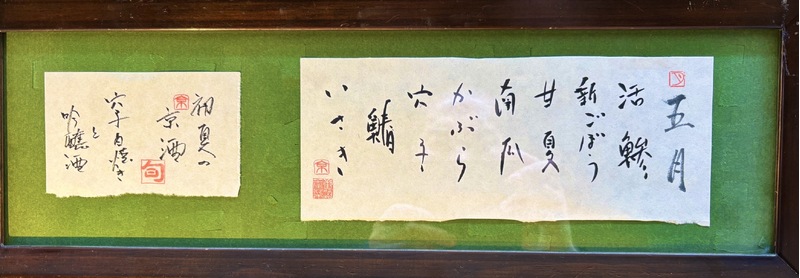 五月
活鯵
新ごぼう
甘夏
南瓜
かぶら
穴子
鯖
いさき
京
初夏の
京酒
京
旬
穴子白焼き
と
吟醸酒